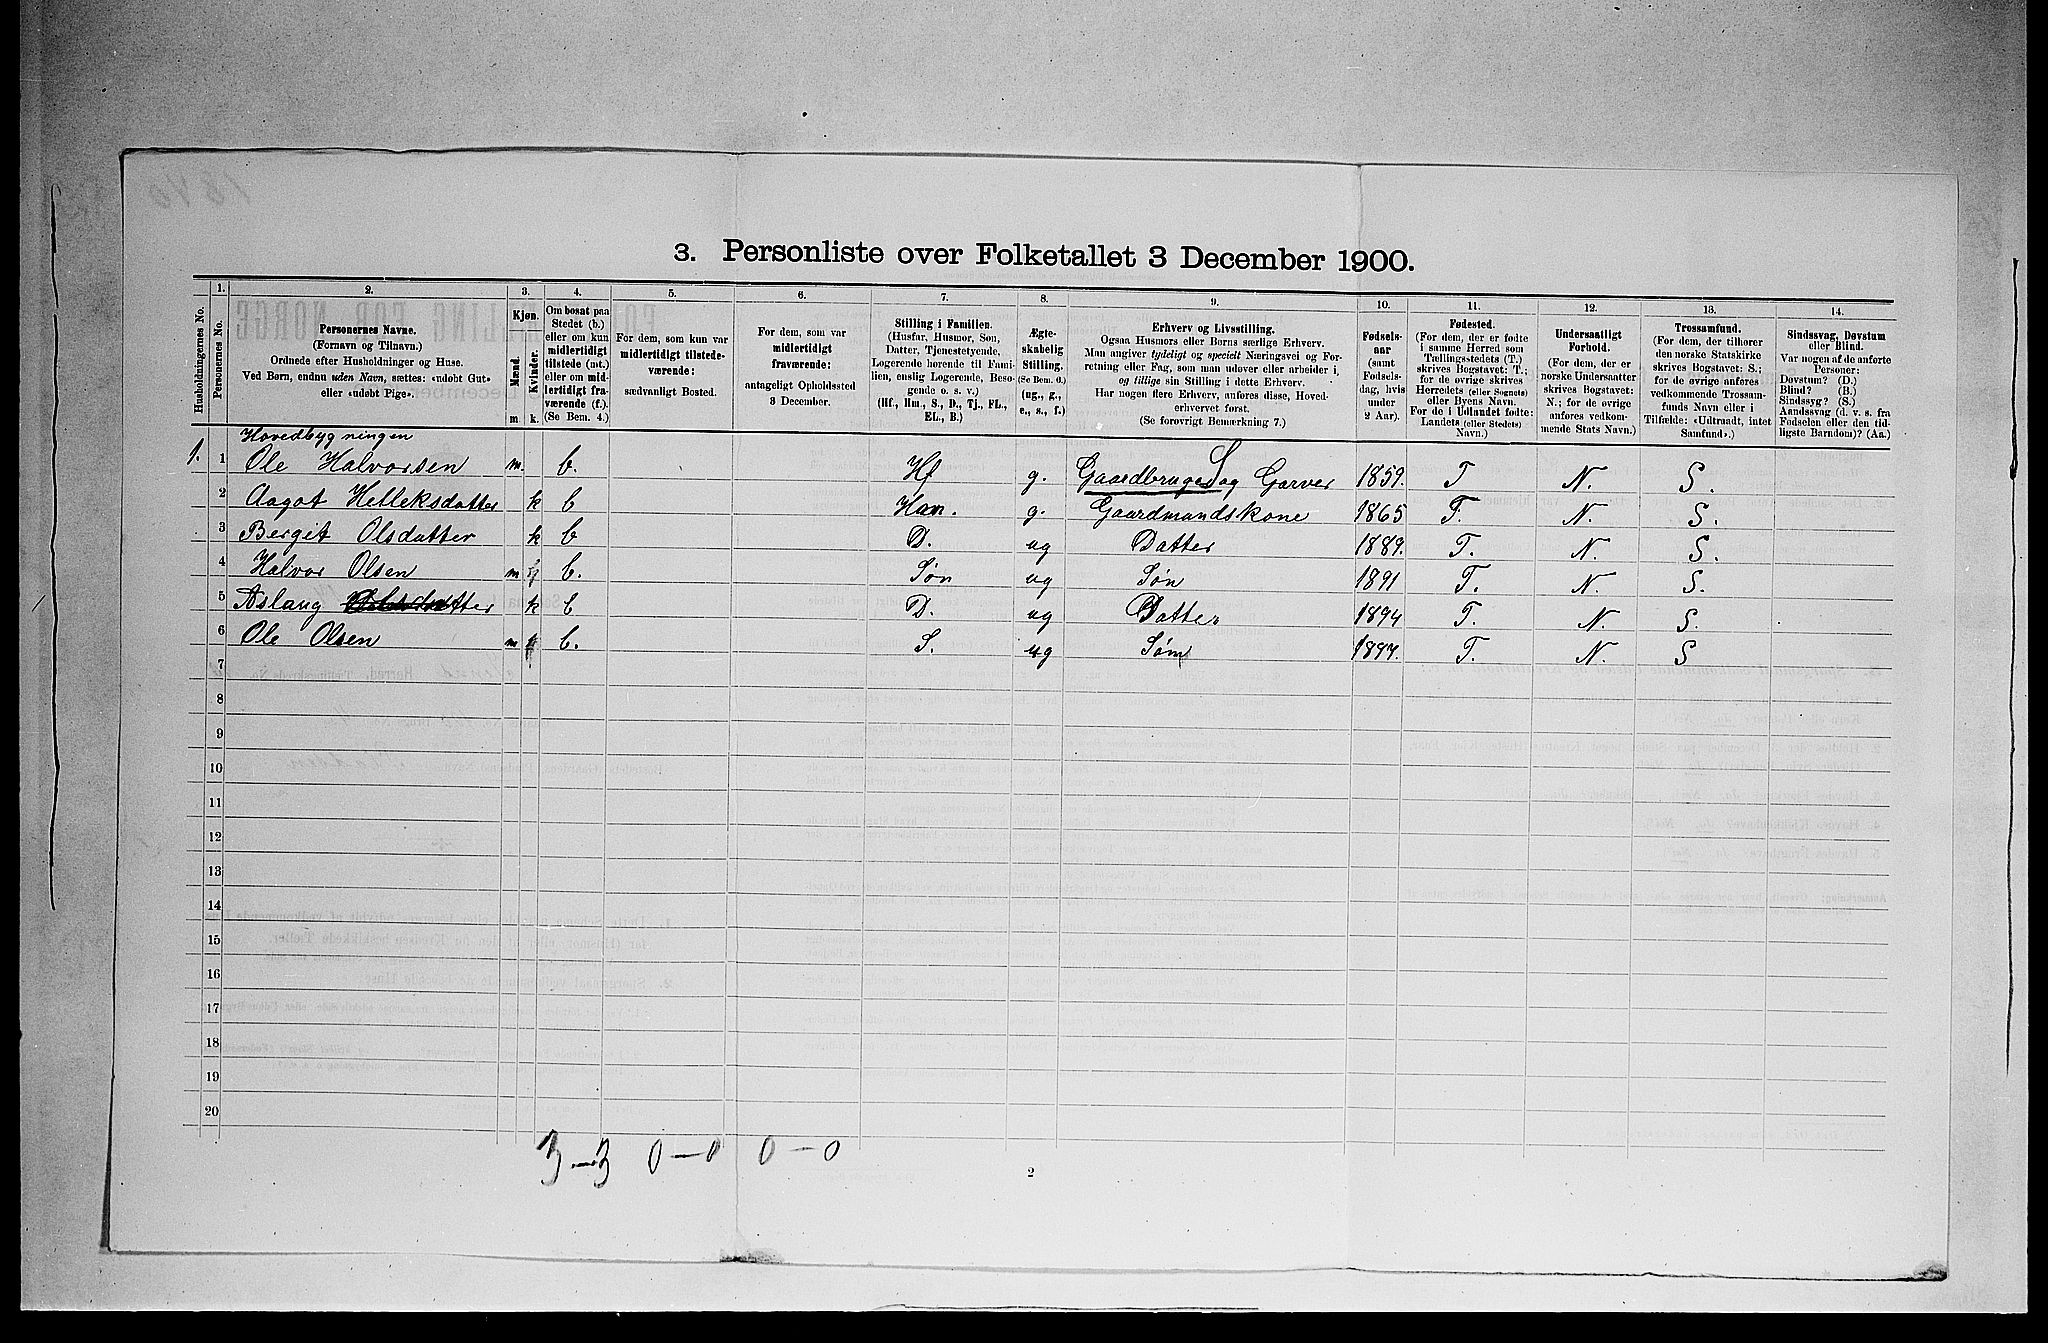 3. Personliste over Folketallet 3 December 1900.
1. 2. 3. 4. 5. 6. 7. 8. 9. 10. 11. 12. 13. 14.
Husholdningernes No.
Personernes No.
Personernes Navne.
(Fornavn og Tilnavn.)
Ordnede efter Husholdninger og Huse.
Ved Børn, endnu uden Navn, sættes: «udøbt Gut»
eller «udøbt Pige».
Kjøn.
Mænd.
Kvinder.
m. k.
Om bosat paa
Stedet (b.)
eller om kun
midlertidigt
tilstede (mt.)
eller om mid-
lertidigt fra-
værende (f.).
(Se Bem. 4.)
For dem, som kun var
midlertidigt tilstede-
værende:
sædvanligt Bosted.
For dem, som var
midlertidigt
fraværende:
antageligt Opholdssted
3 December.
Stilling i Familien.
(Husfar, Husmor, Søn,
Datter, Tjenestetyende,
Logerende hørende til Fami-
lien, enslig Logerende, Besø-
gende o. s. v.)
(Hf., Hm., S., D., Tj., FL.,
EL., B.)
Ægte-
skabelig
Stilling.
(Se Bem. 6.)
(ug., g.,
e., s., f.)
Erhverv og Livsstilling.
Ogsaa Husmors eller Børns særlige Erhverv.
Man angiver tydeligt og specielt Næringsvei og For-
retning eller Fag, som man udøver eller arbeider i,
og tillige sin Stilling i dette Erhverv.
Har nogen flere Erhverv, anføres disse, Hoved-
erhvervet først.
(Se forøvrigt Bemærkning 7.)
Fødsels-
aar
(samt
Fødsels-
dag, hvis
under
2 Aar).
Fødested.
(For dem, der er fødte
i samme Herred som
Tællingsstedets (T.)
skrives Bogstavet: T.;
for de øvrige skrives
Herredets (eller Sognets)
eller Byens Navn.
For de i Udlandet fødte:
Landets (eller Stedets)
Navn.)
Undersaatligt
Forhold.
(For dem, der er
norske Undersaatter
skrives Bogstavet:
N.; for de øvrige
anføres vedkom-
mende Stats Navn.)
Trossamfund.
(For dem, der tilhører
den norske Statskirke
skrives Bogstavet: S.;
for de øvrige anføres
vedkommende Trossam-
funds Navn eller i
Tilfælde: «Udtraadt, intet
Samfund».)
Sindssvag, Døvstum
eller Blind.
Var nogen af de anførte
Personer:
Døvstum? (D.)
Blind? (B.)
Sindssyg? (S.)
Aandssvag (d. v. s. fra
Fødselen eller den tid-
ligste Barndom)? (Aa.)
Hovedbygningen
1. 1 Ole Halvorsen m. b. Hf g. Gaardbruger og Garver 1859. T N. S.
2 Aagot Helleksdatter k b Hm. g. Gaardmandskone 1865 T. N. S.
3 Bergit Olsdatter k b D. ug Datter 1889. T. N. S.
4 Halvor Olsen m b. Søn ug Søn 1891 T. N. S.
5 Aslaug k b D. ug Datter 1894 T. N. S.
6 Ole Olsen m b. S. ug Søn 1897. T. N. S
7
8
9
10
11
12
13
14
15
16
17
18
19
20
3–3 0–0 0–0
2